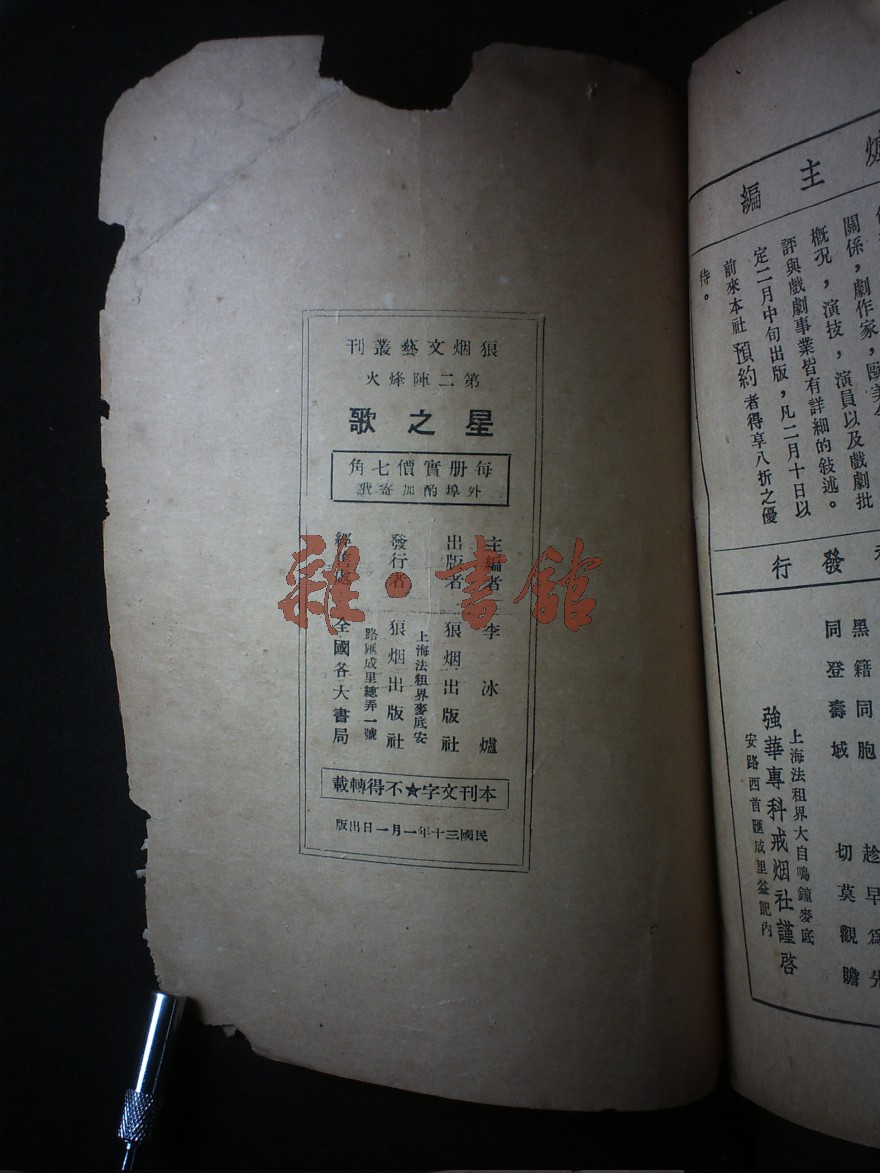 狼烟文藝叢刊
第二陣烽火
星之歌
每册實價七角
外埠酌加寄
主編者 李冰爐
出版者 狼烟出版社
上海法租界麥底安
路匯成里總弄一號
發行者 狼烟出版社
經售處 全國各大書局
本刊文字★不得轉載
民國三十年一月一日出版
雜·書館
主編
關係，劇作家，歐美
概况，演技，演員以及戲劇批
評與戲劇事業皆有詳細的敍述。
定二月中旬出版，凡二月十日以
前來本社預約者得享八折之優
待。
發行
黑籍同胞 趁早爲
同登壽域 切莫觀瞻
上海法租界大自鳴鐘麥底
安路西首匯成里益記內
強華專科戒烟社謹啓